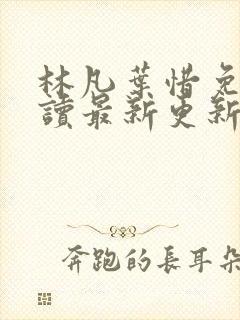 林凡葉惜免
讀最新更新
奔跑的長耳朵